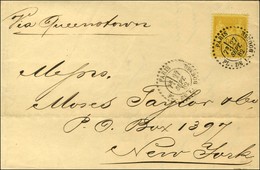 Via Queenstown
Messrs.
Moses Taylor & Co
P.O. Box 1397
New York
PARIS
PARIS